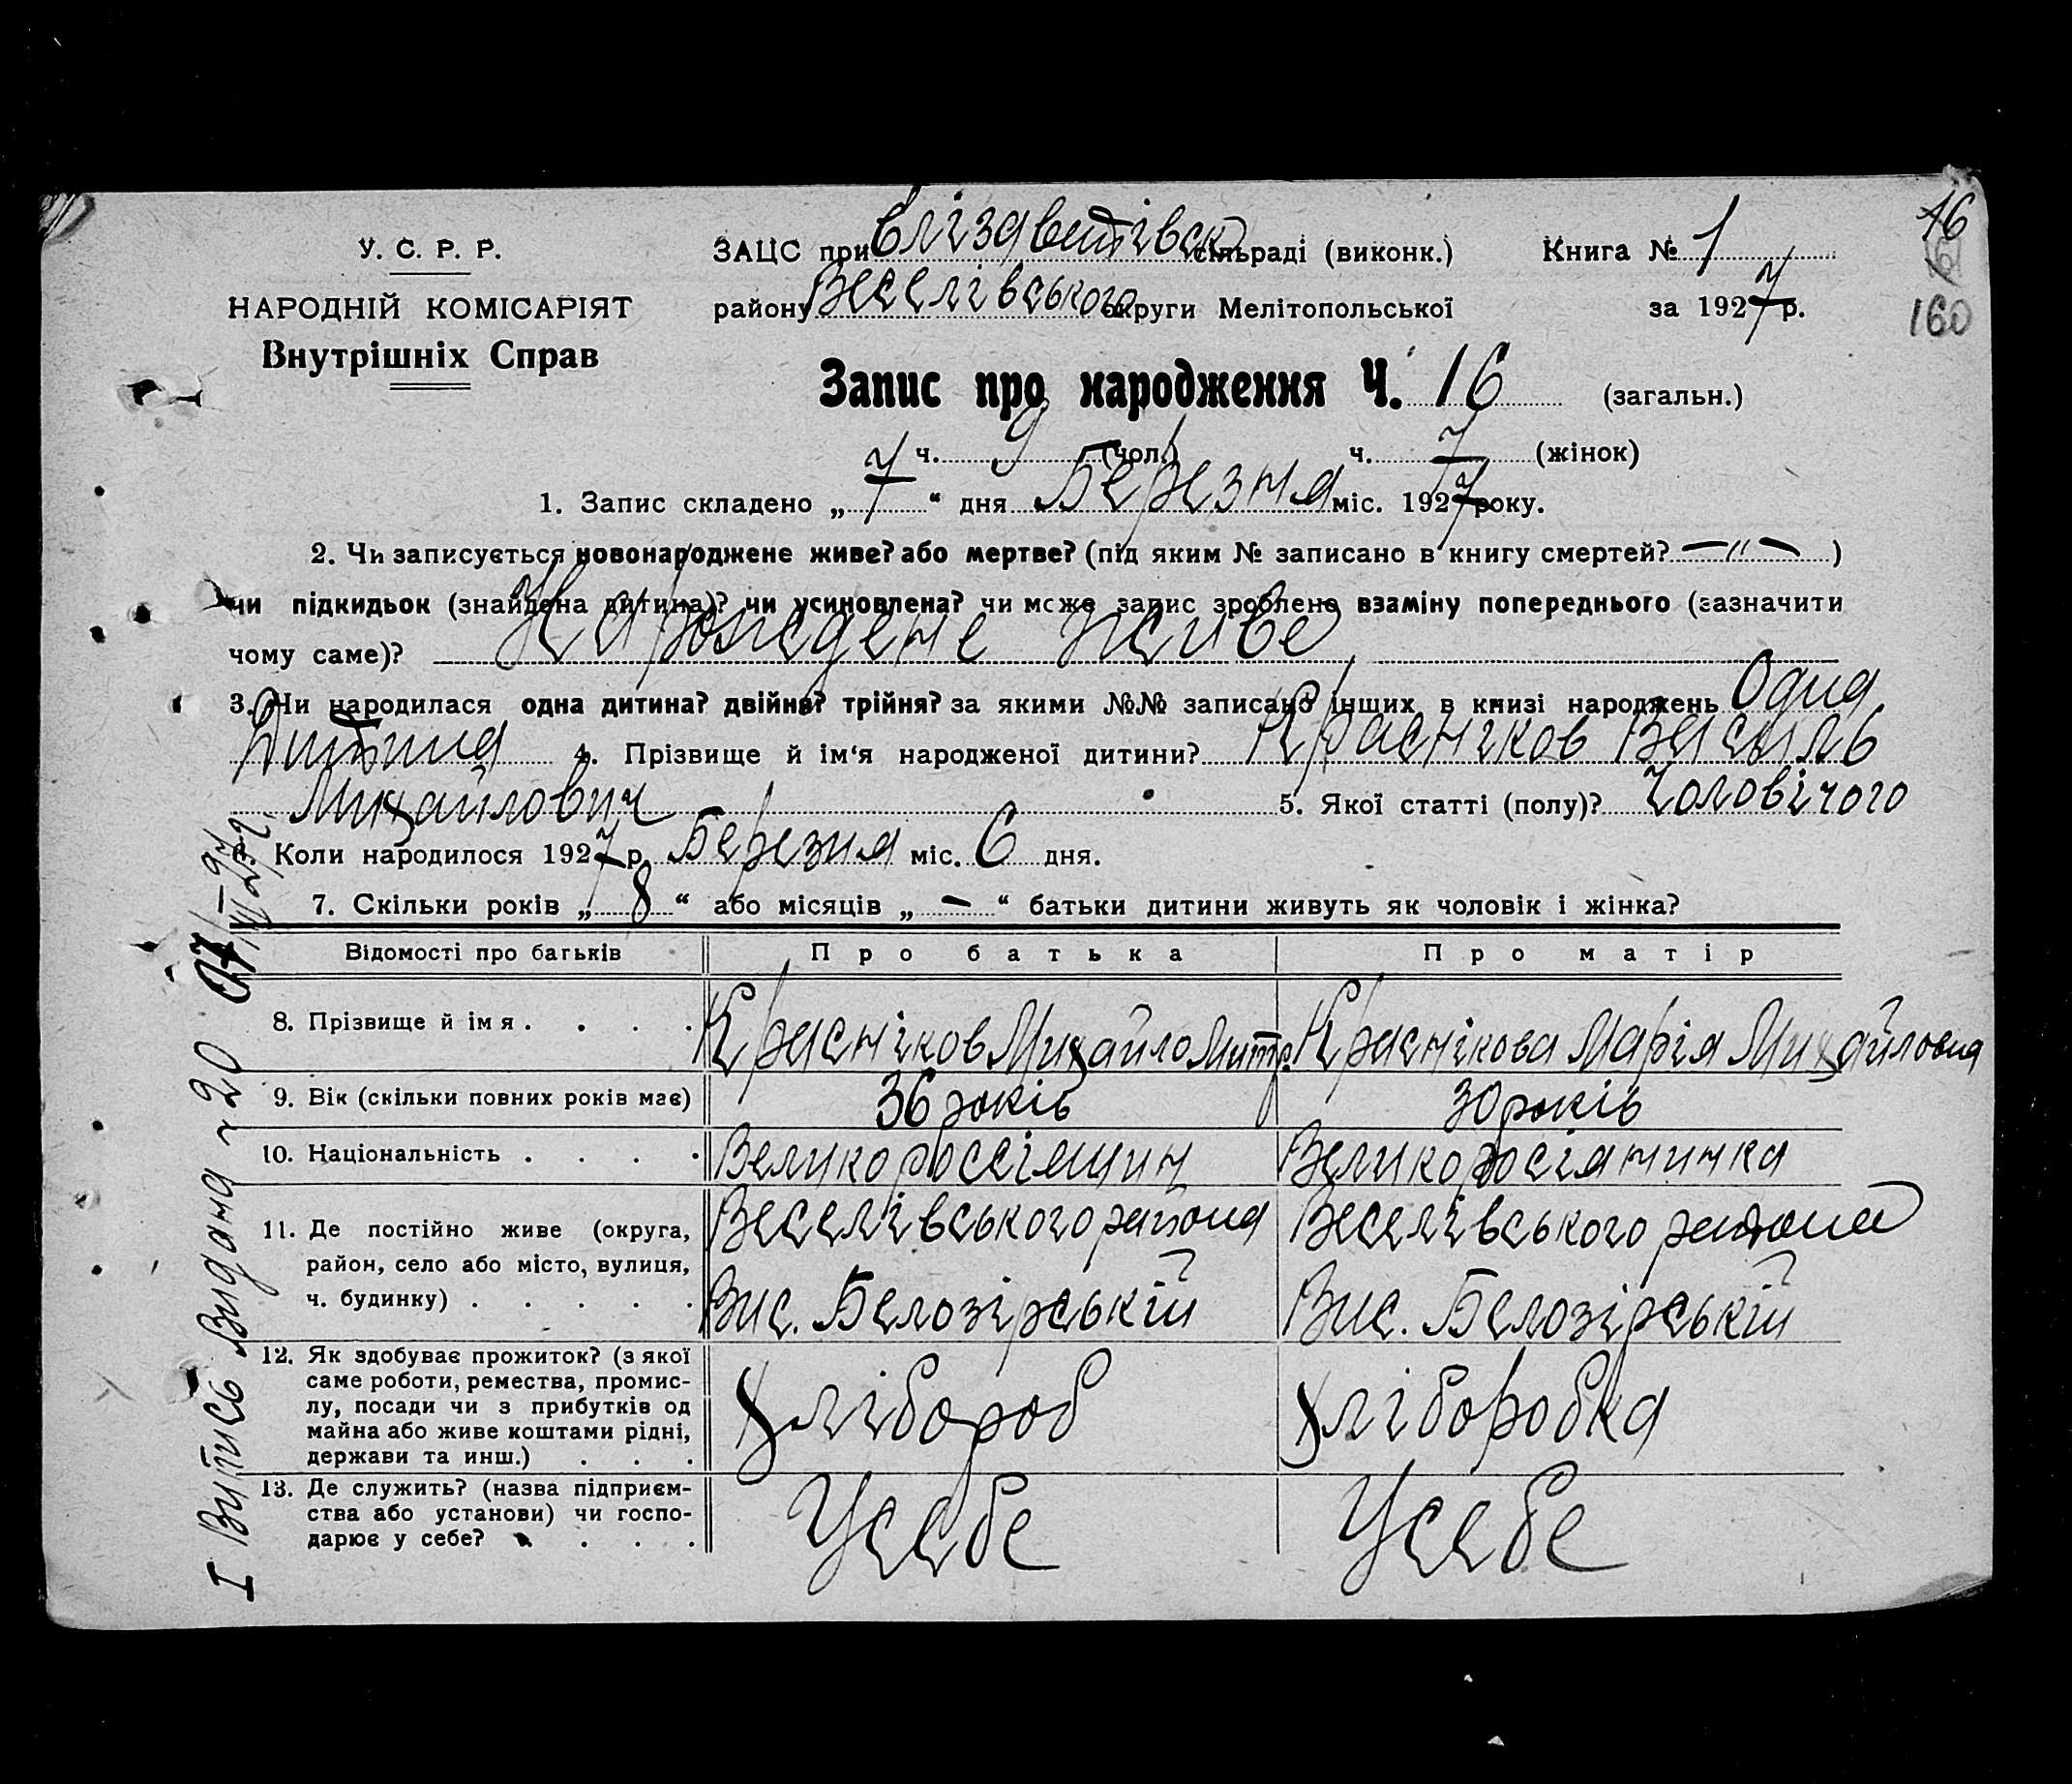 У. С. Р. Р.
НАРОДНІЙ КОМІСАРІЯТ
Внутрішніх Справ
ЗАЦС при Єлізаветівськ сільраді (виконк.)
Книга № 1
16
160
району Веселівського округи Мелітопольської
за 1927 р.
Запис про народження Ч. 16 (загальн.)
ч. 9 (чол.) ч. 7 (жінок)
1. Запис складено „ 7 “ дня Березня міс. 1927 року.
2. Чи записується новонароджене живе? або мертве? (під яким № записано в книгу смертей? —〃— )
чи підкидьок (знайдена дитина)? чи усиновлена? чи може запис зроблено взаміну попереднього (зазначити
чому саме)? Народжене живе
3. Чи народилася одна дитина? двійня? трійня? за якими №№ записано інших в книзі народжень Одна
Дитина 4. Прізвище й ім‘я народженої дитини? Красніков Василь
Михайлович 5. Якої статті (полу)? Чоловічого
Коли народилося 1927 р. Березня міс. 6 дня.
7. Скільки років „ 8 “ або місяців „ — “ батьки дитини живуть як чоловік і жінка?
Відомості про батьків Про батька Про матір
8. Прізвище й імя . . . . Красніков Михайло Митр. Краснікова Марія Михайловна
9. Вік (скільки повних років має) 36 років 30 років
10. Національність . . . . Великоросіянин Великоросіянинка
11. Де постійно живе (округа, Веселівського района Веселівського района
район, село або місто, вулиця,
ч. будинку) . . . . . Вис. Белозірській Вис. Белозірській
12. Як здобуває прожиток? (з якої
саме роботи, ремества, промис-
лу, посади чи з прибутків од
майна або живе коштами рідні,
держави та инш.) . . . Хлібороб Хліборобка
13. Де служить? (назва підприєм-
ства або установи) чи госпо-
дарює у себе? . . . . Усебе Усебе
I Випись Видана 20